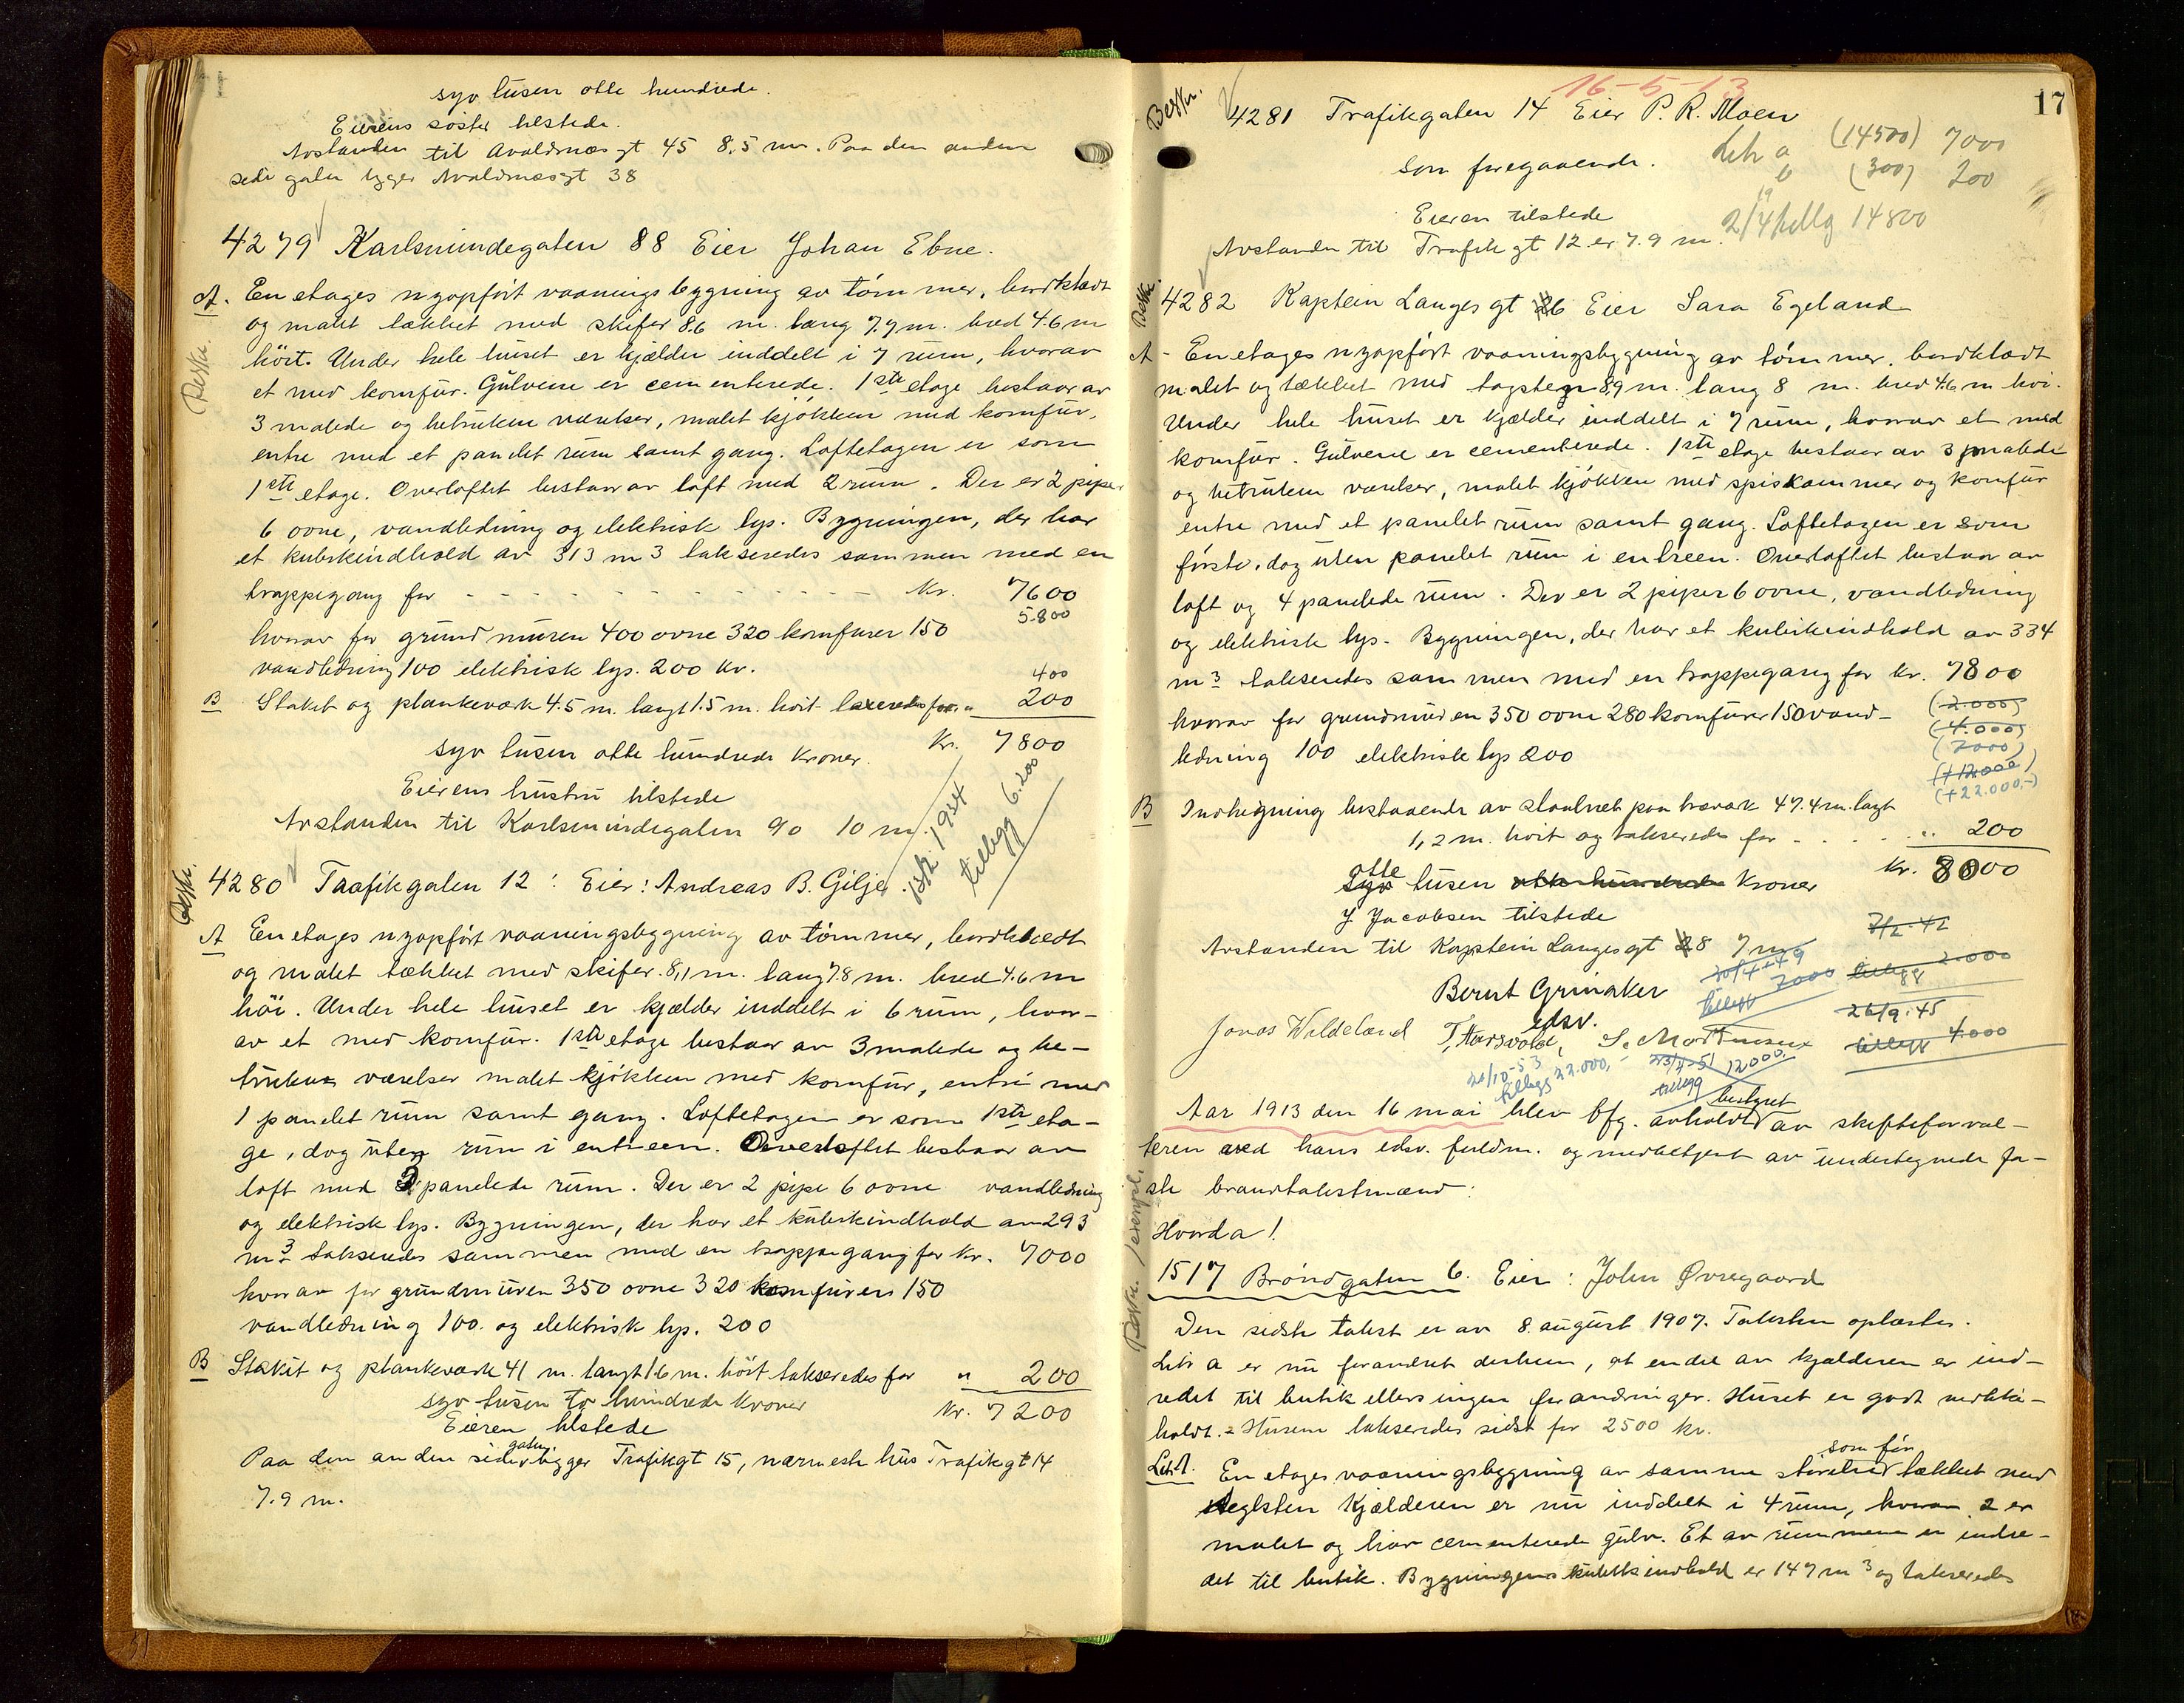 syv tusen otte hundrede.
Eierens søster tilstede.
Avstanden til Avaldsnæsgt 45 8,5 m. Paa den anden
side gaten ligger Avaldsnæsgt 38
4279 Karlsmindegaten 88 Eier Johan Ebne.
Beskr.
A. En etages nyopført vaaningsbygning av tømmer, bordklædt
og malet tækket med skifer 8.6 m. lang 7.7 m. bred 4.6 m
höit. Under hele huset er kjælder inddelt i 7 rum, hvorav
et med komfur. Gulvene er cementerede. 1ste etage bestaar av
3 malede og betrukne værelser, malet kjøkken med komfur,
entre med et panelet rum samt gang. Loftetagen er som
1ste etage. Overloftet bestaar av loft med 2 rum. Der er 2 piper
6 ovne, vandledning og elektrisk lys. Bygningen, der har
et kubikindhold av 313 m3 takseredes sammen med en
trappegang for - - - - - - - - - - Kr. 7600
5.800
hvorav for grundmuren 400 ovne 320 komfurer 150
vandledning 100 elektrisk lys. 200 Kr.
400
B Stakit og plankeværk 45 m. langt 1.5 m. höit taxeredes for " 200
syv tusen otte hundrede Kroner. Kr. 7800
Eierens hustru tilstede
Avstanden til Karlsmindegaten 90 10 m.
1934
tillegg 6.200
Beskr.
4280 Trafikgaten 12 : Eier: Andreas B. Gilje.
A En etages nyopført vaaningsbygning av tømmer, bordklædt
og malet tækket med skifer. 8,1 m. lang 7.8 m. bred 4.6 m
höi. Under hele huset er kjælder inddelt i 6 rum, hvor-
av et med komfur. 1ste etage bestaar av 3 malede og be-
trukne værelser malet kjøkken med komfur, entre med
1 panelet rum samt gang. Loftetagen er som 1ste eta-
ge, dog uten rum i entreen. Overloftet bestaar av
loft med 2 panelede rum. Der er 2 pipe 6 ovne vandledning
og elektrisk lys. Bygningen, der har et kubikindhold av 293
m3 takseredes sammen med en trappegang for Kr. 7000
hvorav for grundmuren 350 ovne 320 komfuren 150
vandledning 100. og elektrisk lys. 200
B Stakit og plankeværk 41 m. langt 1.6 m. höit takseredes for " 200
syv tusen to hundrede Kroner Kr. 7200
Eieren tilstede
Paa den anden side gaten ligger Trafikgt 15, nærmeste hus Trafikgt 14
7.9 m.
16-5-13
17
Beskr.
4281 Trafikgaten 14 Eier P. R. Moen
Som foregaaende. Litr a (14500) 7000
b (300) 200
Eieren tilstede
2/4 tillg 14800
Avstanden til Trafikgt 12 er 7.9 m.
Beskr.
4282 Kaptein Langes gt 26 Eier Sara Egeland
A - En etages nyopført vaaningsbygning av tømmer, bordklædt
malet og tækket med tagsten 8,9 m. lang 8 m. bred 4.6 m höi.
Under hele huset er kjælder inddelt i 7 rum, hvorav et med
komfur. Gulvene er cementerede. 1ste etage bestaar av 3 malede
og betrukne værelser, malet kjøkken med spiskammer og komfur
entre med et panelet rum samt gang. Loftetagen er som
første, dog uten panelet rum i entreen. Overloftet bestaar av
loft og 4 panelede rum. Der er 2 piper 6 ovne, vandledning
og elektrisk lys. Bygningen, der har et kubikindhold av 334
m3 takseredes sammen med en trappegang for kr. 7800
hvorav for grundmuren 350 ovne 280 komfurer 150 vand-
ledning 100 elektriske lys 200
(2.000)
(4.000)
(7000)
(+12.000)
(+22.000,-)
B Indhegning bestaaende av staalnet paa træværk 47.4 m. langt
1,2 m. höit og takseredes for - . . . . " 200
otte
syv tusen otte hundrede Kroner Kr. 8000
J. Jacobsen tilstede
7/2-42
Avstanden til Kaptein Langesgt 28 7 m
tillegg 2.000
20/4-49
tillegg 7000
Bernt Grinaker
edsv.
26/9-45
tillegg 4.000
Jonas Wildeland T. Harsvold, S. Mortensen
20/10-53
tillegg 22.000,-
23/2-51 12.000,
tillegg
Aar 1913 den 16 mai blev bfg. avholdt bestyret av skifteforval-
teren ved hans edsv. fuldm. og medbetjent av undertegnede fa-
ste brandtakstmænd:
Hvorda!
1517 Bröndgaten 6. Eier: John Øvregaard
Den sidste takst er av 8. august 1907. Taksten oplæstes.
Litr a er nu forandret derhen, at en del av kjælderen er ind-
redet til butik ellers ingen forandringer. Huset er godt vedlike-
holdt. Husene takseredes sidst for 2500 kr.
Litr A. En etages vaaningsbygning av samme størrelse som før tækket med
teglsten Kjælderen er nu inddelt i 4 rum, hvorav 2 er
malet og har cementerede gulv. Et av rummene er indre-
det til butik. Bygningens kubikindhold er 147 m3 og takseredes